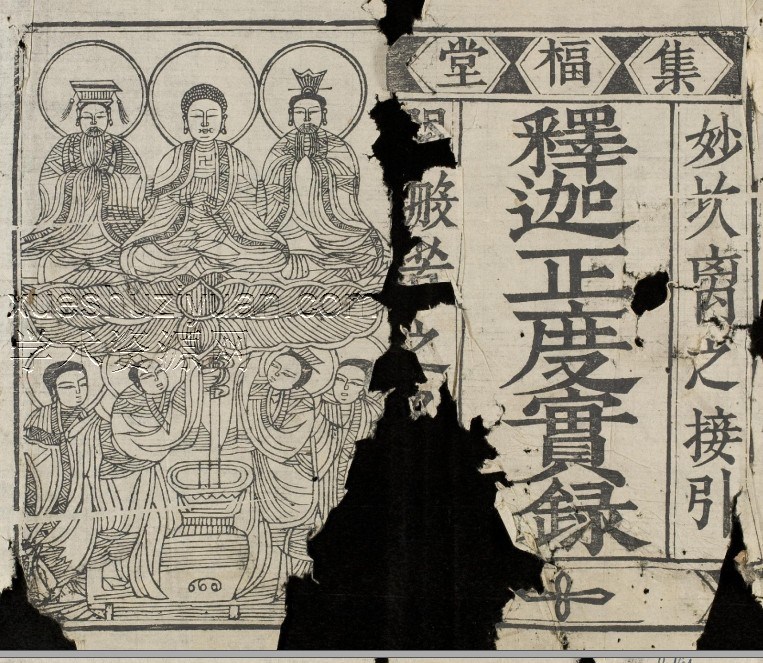 集福堂
妙坎离之接引
釋迦正度實録
般苦之
xueshuziyuan.com
学术资源网